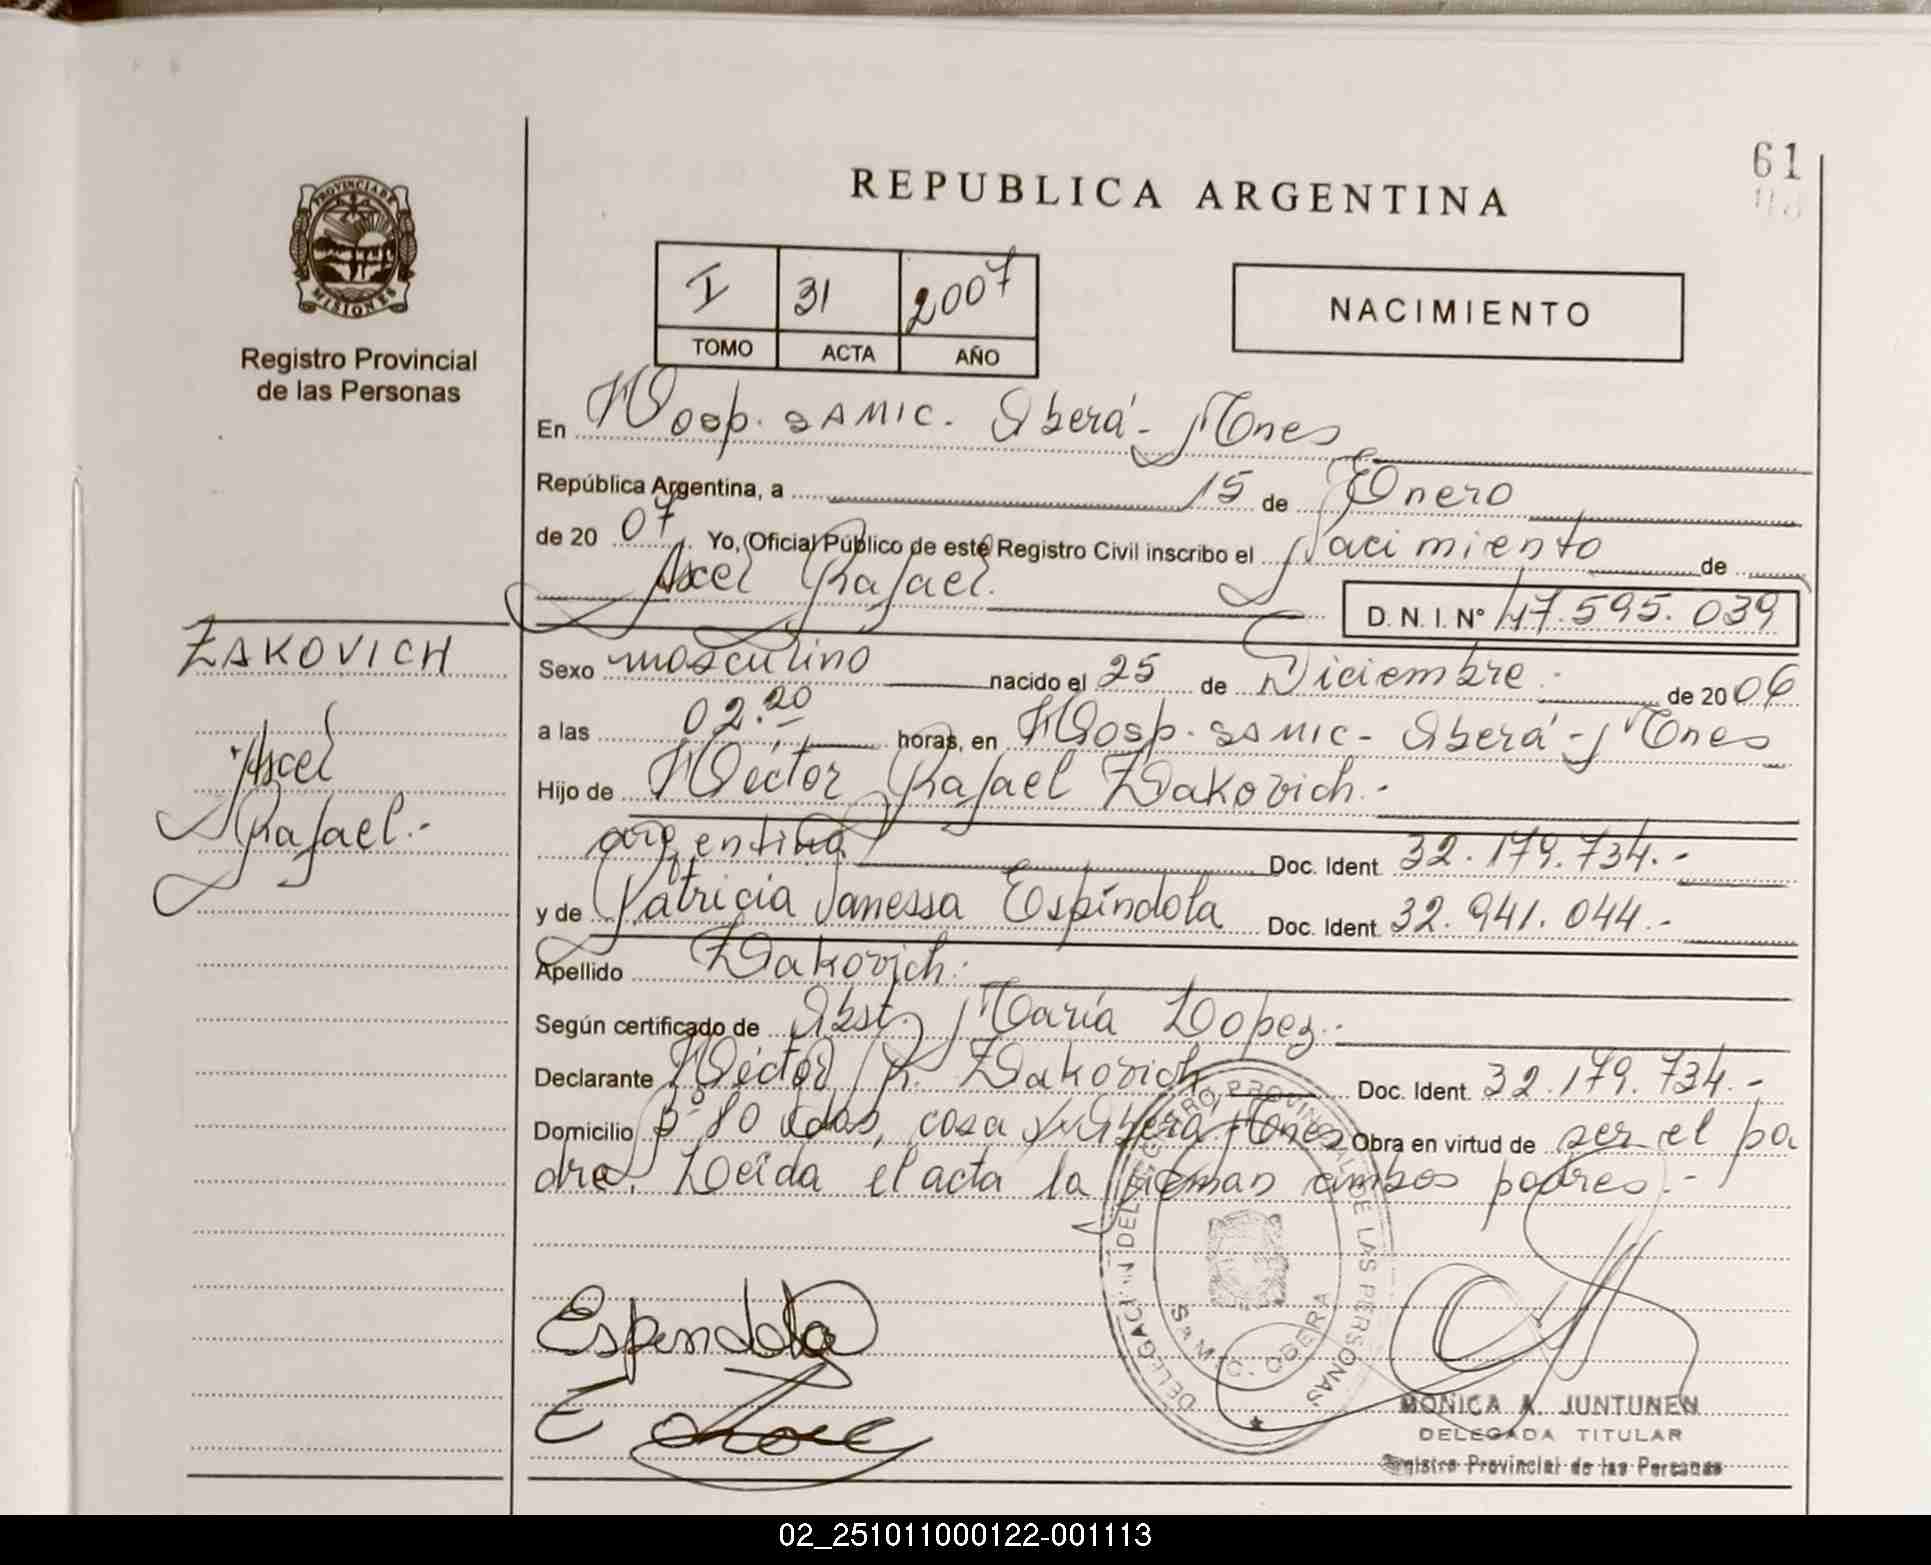 61
REPUBLICA ARGENTINA
PROVINCIA DE MISIONES
Registro Provincial
de las Personas
I 31 2007
TOMO ACTA AÑO
NACIMIENTO
En Hosp. SAMIC - Oberá - Mnes
República Argentina, a 15 de Enero
de 2007. Yo, Oficial Público de este Registro Civil inscribo el Nacimiento de
Axcel Rafael.
D. N. I. Nº 47.595.039
ZAKOVICH
Axcel
Rafael.-
Sexo masculino nacido el 25 de Diciembre.- de 2006
a las 02.20 horas, en Hosp. SAMIC - Oberá - Mnes
Hijo de Héctor Rafael Zakovich.-
argentina Doc. Ident. 32.179.734.-
y de Patricia Vanessa Espíndola Doc. Ident. 32.941.044.-
Apellido Zakovich.-
Según certificado de Obst. María Lopez.-
Declarante Héctor R. Zakovich Doc. Ident. 32.179.734.-
Domicilio Bº 80 Vdas, casa Oberá Mnes Obra en virtud de ser el pa
dre. Leída el acta la firman ambos padres.-
DELEGACION DEL REGISTRO PROVINCIAL DE LAS PERSONAS
SAMIC. OBERA
Espindola
MONICA A. JUNTUNEN
DELEGADA TITULAR
Registro Provincial de las Personas
02_251011000122-001113